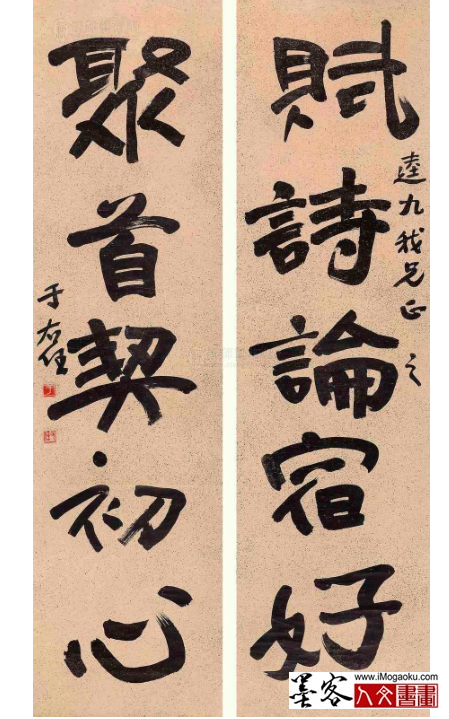 賦詩論宿好
逵九我兄正之
聚首契初心
于右任
www.iMogaoku.com
墨客
人文書畫